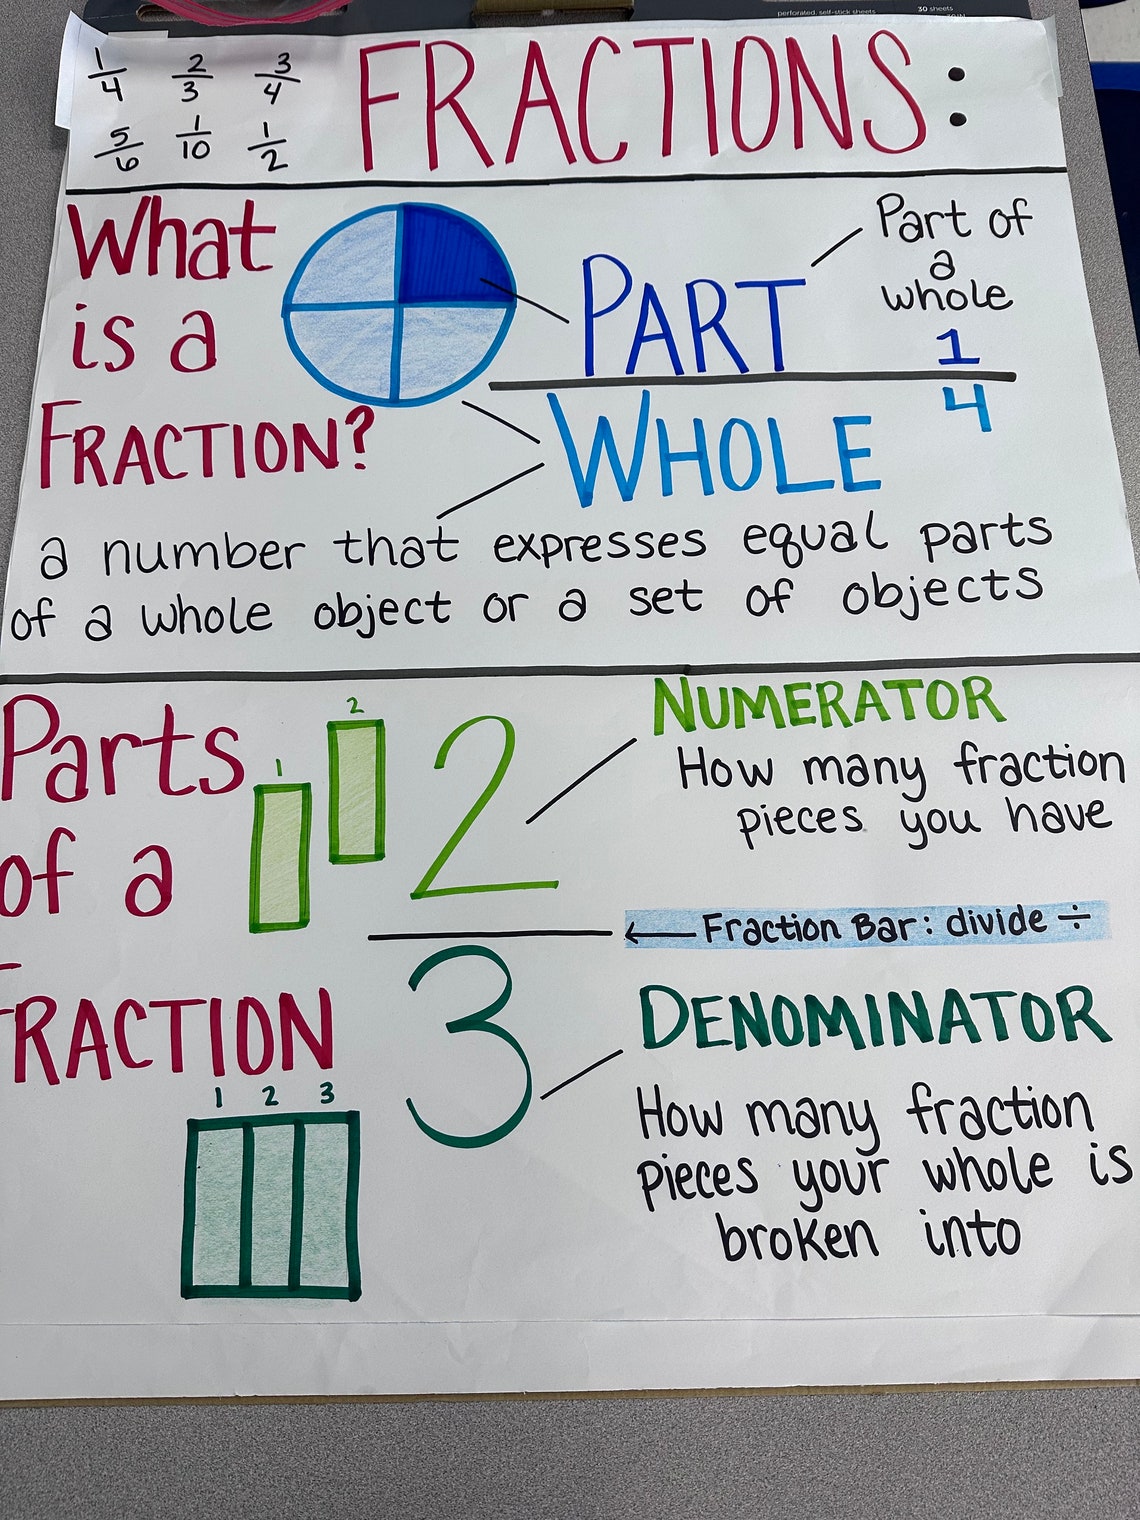 perforated, self-stick sheets
30 sheets
1/4 2/3 3/4
5/6 1/10 1/2
FRACTIONS:
What
is a
FRACTION?
PART
WHOLE
Part of
a
whole
1
4
a number that expresses equal parts
of a whole object or a set of objects
Parts
of a
FRACTION
1
2
2
3
1 2 3
NUMERATOR
How many fraction
pieces you have
← Fraction Bar: divide ÷
DENOMINATOR
How many fraction
pieces your whole is
broken into